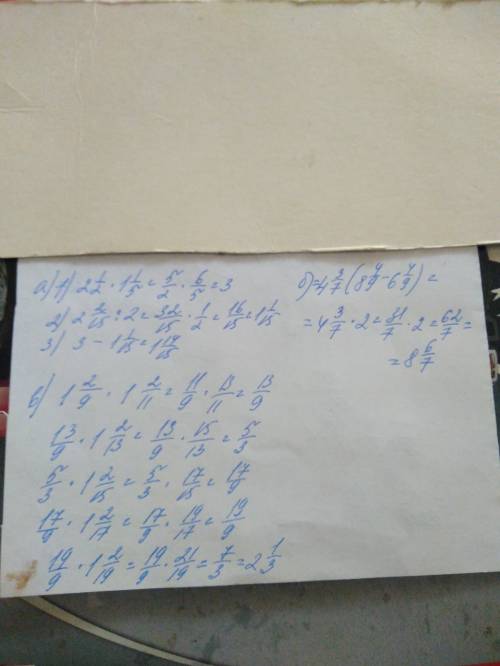 а) 1) 2 1/2 · 1 1/5 = 5/2 · 6/5 = 3
2) 2 2/15 : 2 = 32/15 · 1/2 = 16/15 = 1 1/15
3) 3 - 1 1/15 = 1 14/15
б) = 4 3/7 (8 4/9 - 6 4/9) =
= 4 3/7 · 2 = 31/7 · 2 = 62/7 =
= 8 6/7
в) 1 2/9 · 1 2/11 = 11/9 · 13/11 = 13/9
13/9 · 1 2/13 = 13/9 · 15/13 = 5/3
5/3 · 1 2/15 = 5/3 · 17/15 = 17/9
17/9 · 1 2/17 = 17/9 · 19/17 = 19/9
19/9 · 1 2/19 = 19/9 · 21/19 = 7/3 = 2 1/3